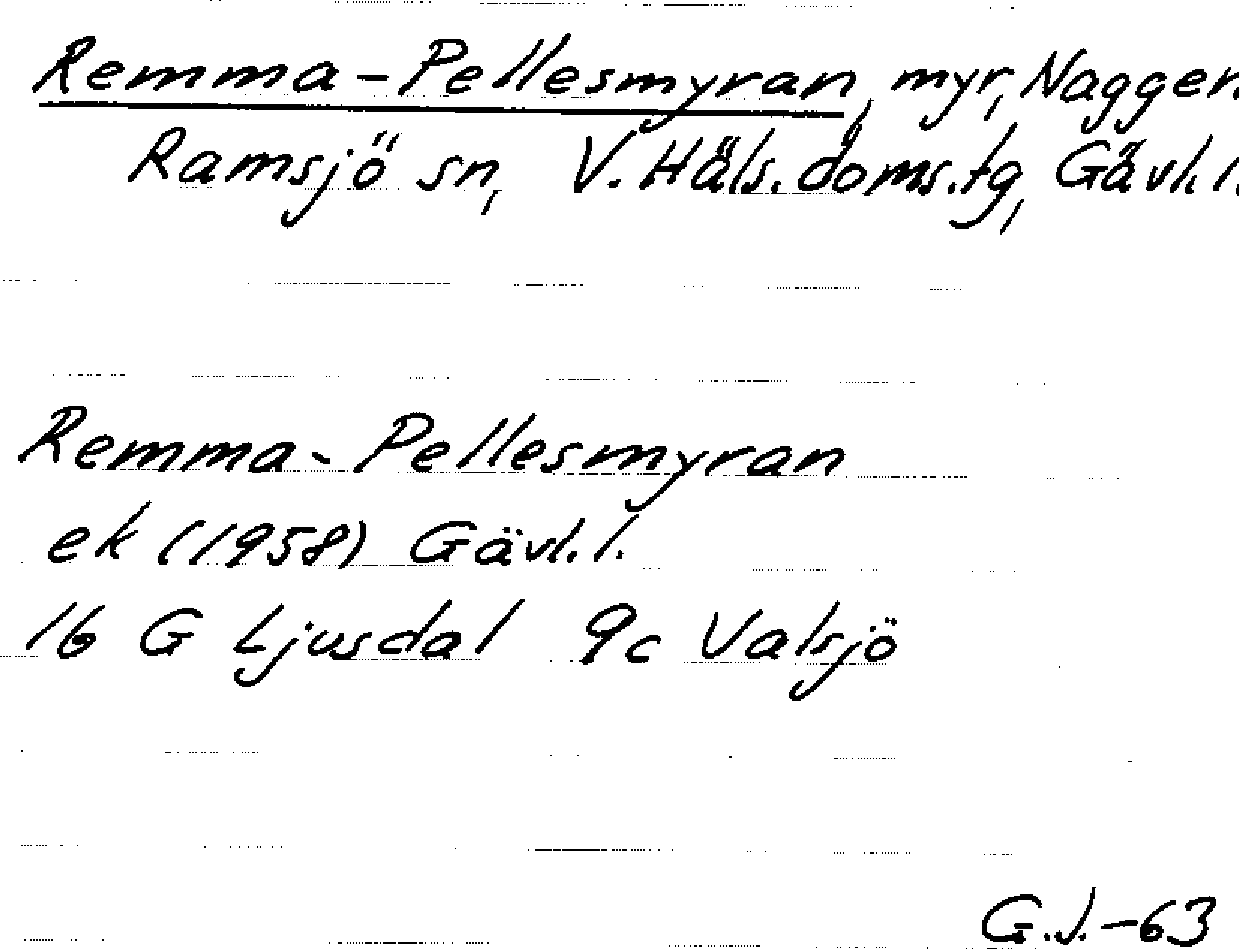 Remma-Pellesmyran, myr, Naggen,
Ramsjö sn, V. Häls. doms.tg, Gävl. l.
Remma-Pellesmyran
ek (1958) Gävl. l.
16 G Ljusdal 9c Valsjö
G.J.-63